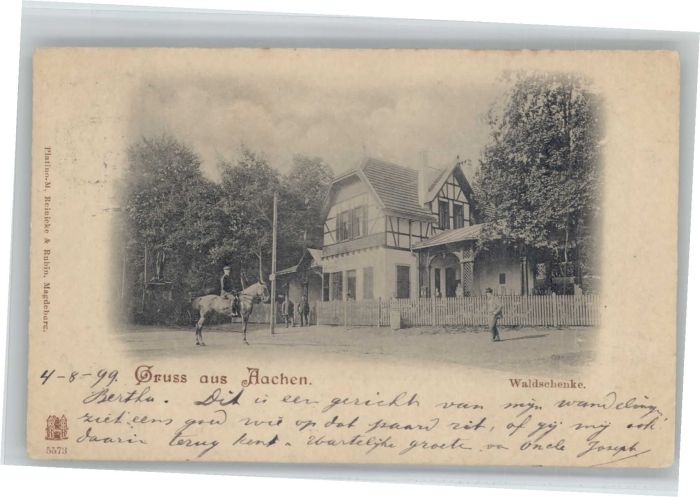 Platino-M, Reinicke & Rubin, Magdeburg.
4-8-99. Gruss aus Aachen.
Waldschenke.
Bertha. Dit is een gezicht van mijn wandeling,
ziet eens goed wie op dat paard zit, of gij mij ook
daarin terug kent. Hartelijke groete van Oncle Joseph
5573